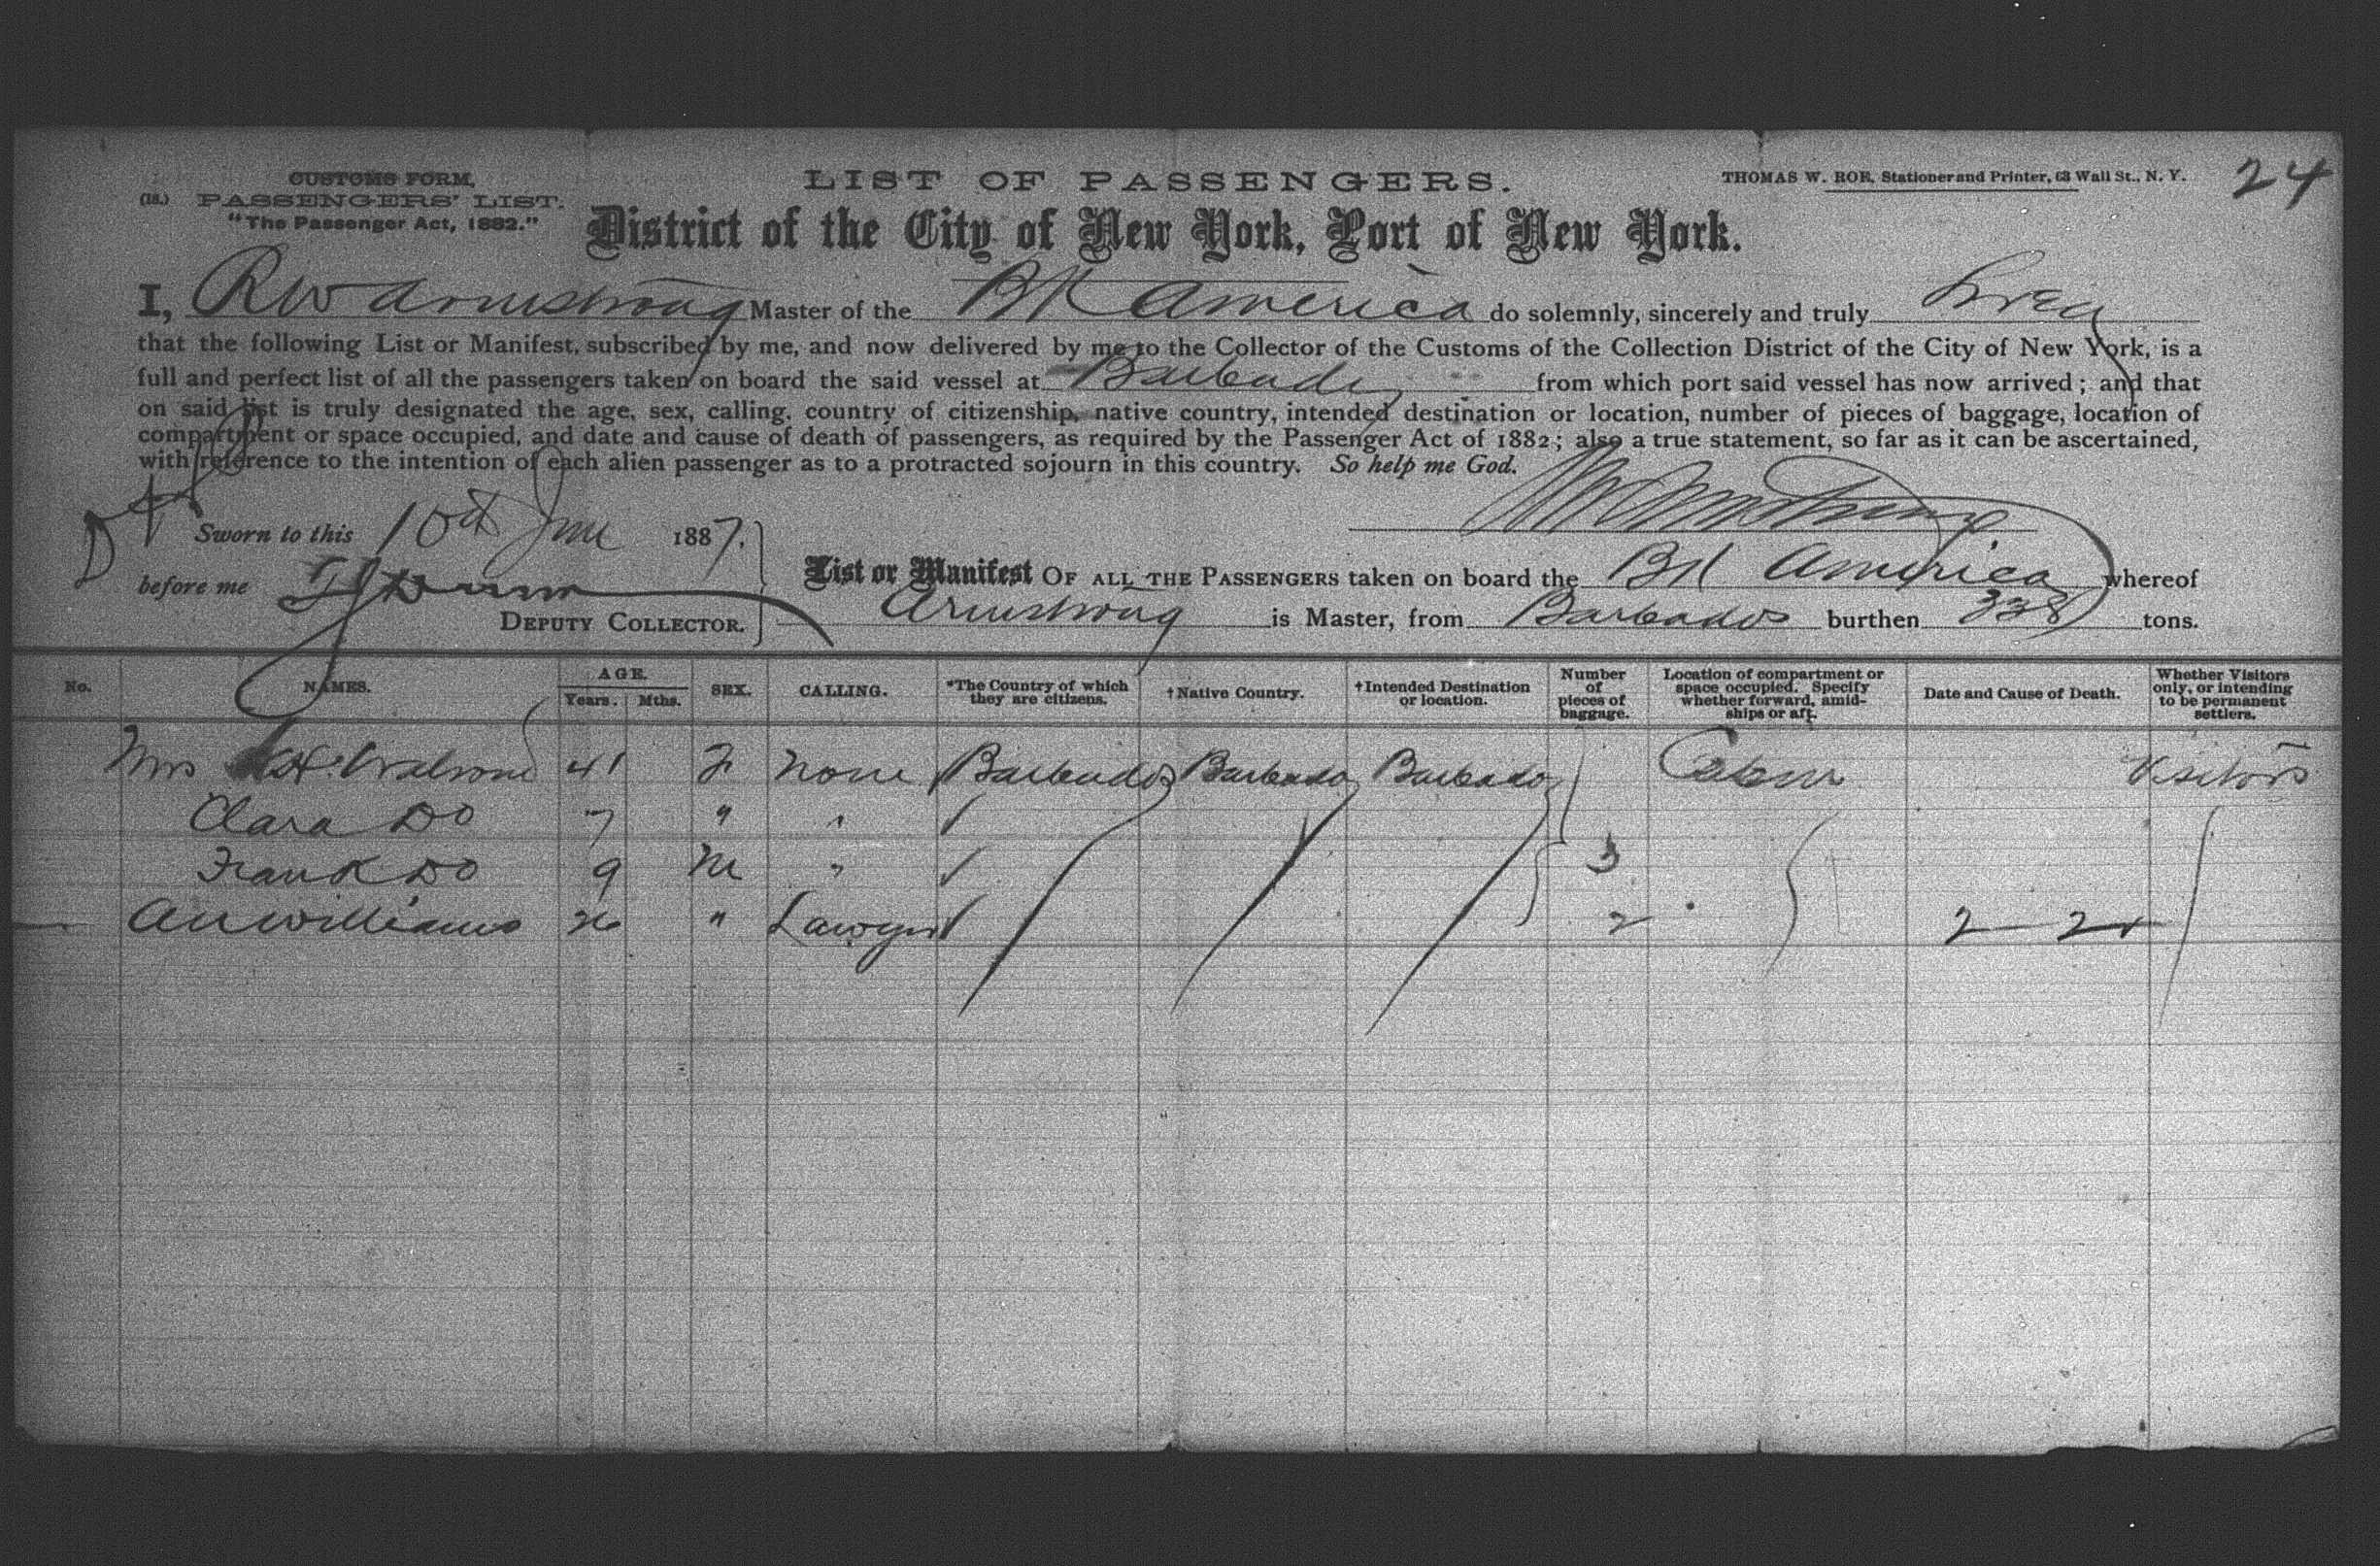 CUSTOMS FORM.
(18.) PASSENGERS' LIST.
"The Passenger Act, 1882."
LIST OF PASSENGERS.
THOMAS W. ROE, Stationer and Printer, 63 Wall St., N. Y.
24
District of the City of New York, Port of New York.
I, RW Armstrong Master of the BK America do solemnly, sincerely and truly Swear
that the following List or Manifest, subscribed by me, and now delivered by me to the Collector of the Customs of the Collection District of the City of New York, is a
full and perfect list of all the passengers taken on board the said vessel at Barbados from which port said vessel has now arrived; and that
on said list is truly designated the age, sex, calling, country of citizenship, native country, intended destination or location, number of pieces of baggage, location of
compartment or space occupied, and date and cause of death of passengers, as required by the Passenger Act of 1882; also a true statement, so far as it can be ascertained,
with reference to the intention of each alien passenger as to a protracted sojourn in this country. So help me God.
RW Armstrong
Sworn to this 10th June 1887.
before me
DEPUTY COLLECTOR.
List or Manifest OF ALL THE PASSENGERS taken on board the Bk America whereof
Armstrong is Master, from Barbados burthen 338 tons.
No. NAMES. AGE. Years. Mths. SEX. CALLING. *The Country of which they are citizens. †Native Country. †Intended Destination or location. Number of pieces of baggage. Location of compartment or space occupied. Specify whether forward, amidships or aft. Date and Cause of Death. Whether Visitors only, or intending to be permanent settlers.
Mrs H. Walrond 41 F None Barbados Barbados Barbados Cabin Visitors
Clara Do 7 " "
Frank Do 9 M " 3
AW Williams 26 " Lawyer 2 2 2